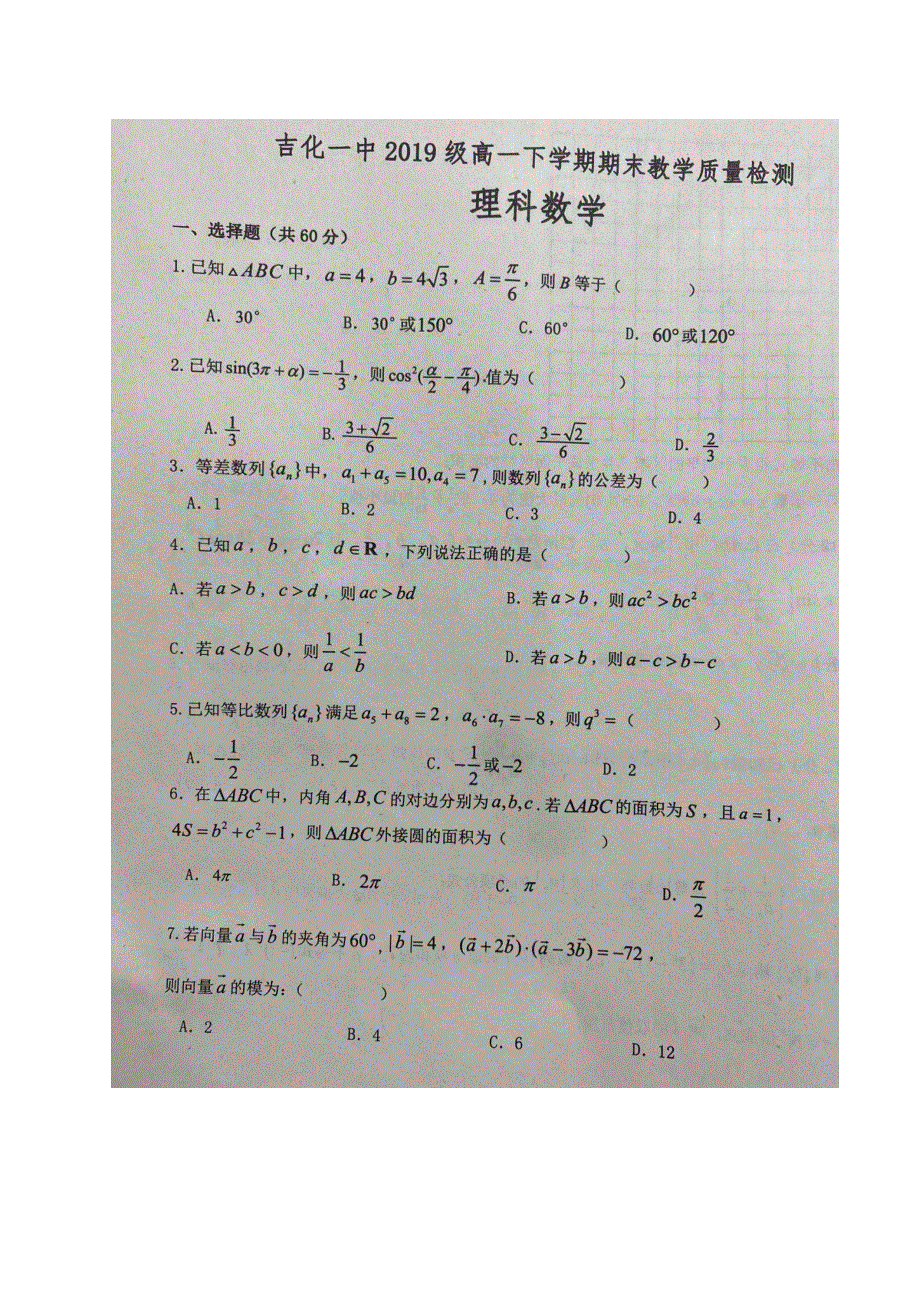 吉化一中2019级高一下学期期末教学质量检测
理科数学
一、选择题（共60分）
1.已知△ABC中，a=4，b=4√3，A=π/6，则B等于（　　）
A．30°　B．30°或150°　C．60°　D．60°或120°
2.已知sin(3π+α)=-1/3，则cos²(α/2-π/4)值为（　　）
A. 1/3　B. (3+√2)/6　C．(3-√2)/6　D．2/3
3．等差数列{aₙ}中，a₁+a₅=10,a₄=7,则数列{aₙ}的公差为（　　）
A．1　B．2　C．3　D．4
4．已知a，b，c，d∈R，下列说法正确的是（　　）
A．若a>b，c>d，则ac>bd　B．若a>b，则ac²>bc²
C．若a<b<0，则1/a<1/b　D．若a>b，则a-c>b-c
5.已知等比数列{aₙ}满足a₅+a₈=2，a₆·a₇=-8，则q³=（　　）
A．-1/2　B．-2　C．-1/2或-2　D．2
6．在△ABC中，内角A,B,C的对边分别为a,b,c.若△ABC的面积为S，且a=1，
4S=b²+c²-1，则△ABC外接圆的面积为（　　）
A．4π　B．2π　C．π　D．π/2
7.若向量a⃗与b⃗的夹角为60°,|b⃗|=4，(a⃗+2b⃗)·(a⃗-3b⃗)=-72，
则向量a⃗的模为:（　　）
A．2　B．4　C．6　D．12